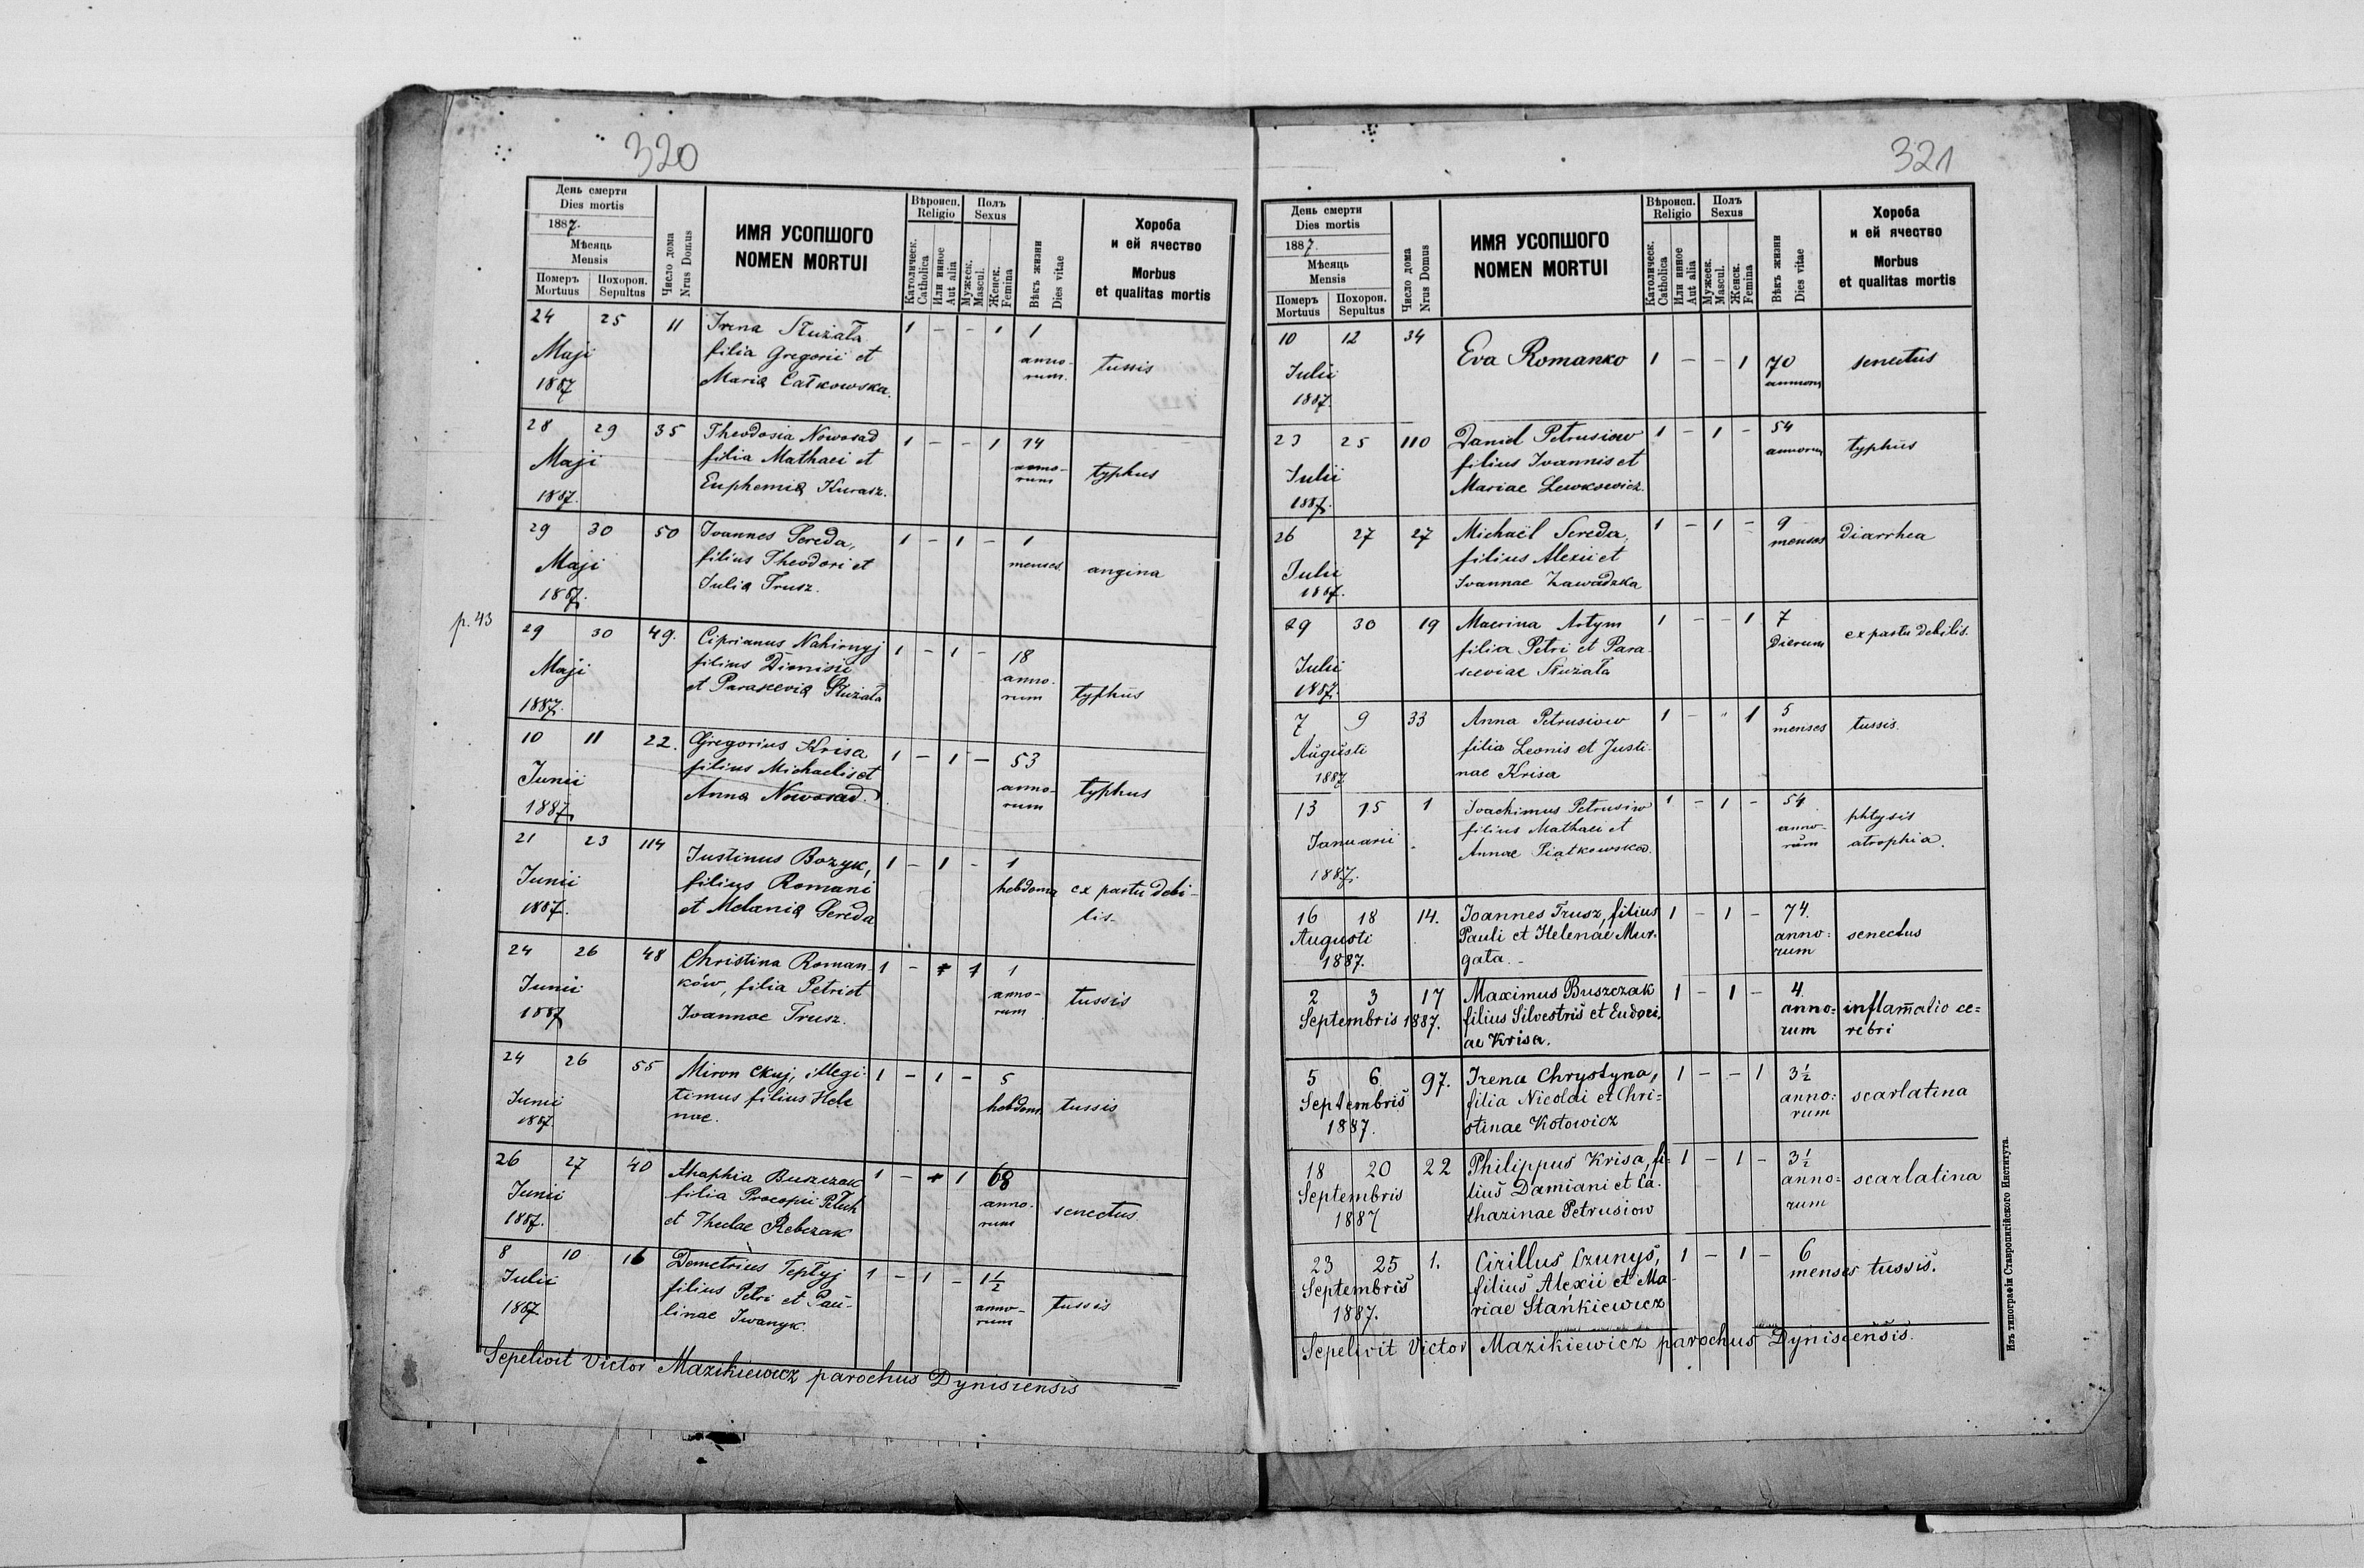 320
День смерти
Dies mortis
1887.
Мѣсяць
Mensis
Померъ Mortuus
Похорон. Sepultus
Число дома
Nrus Domus
ИМЯ УСОПШОГО
NOMEN MORTUI
Вѣроисп.
Religio
Католическ.
Catholica
Или инное
Aut alia
Полъ
Sexus
Мужеск.
Mascul.
Женск.
Femina
Вѣкъ жизни
Dies vitae
Хороба
и ей ячество
Morbus
et qualitas mortis
24 25 11 Irena Służała 1 - - 1 1
Maji filia Gregorii et anno- tussis
1887 Maria Całkowska. rum.
28 29 35 Theodosia Nowosad 1 - - 1 14
Maji filia Mathaei et anno- typhus
1887. Euphemia Kurasz. rum
29 30 50 Ioannes Sereda, 1 - 1 - 1
Maji filius Theodori et menses. angina
1887. Iulia Trusz.
p. 43
29 30 49. Ciprianus Nahirnyj 1 - 1 - 18
Maji filius Dionisii anno- typhus
1887. et Paraxevia Służała rum
10 11 22. Gregorius Krisa 1 - 1 - 53
Junii filius Michaelis et anno- typhus
1887. Anna Nowosad. rum
21 23 114 Iustinus Bozyk, 1 - 1 - 1
Iunii filius Romani hebdoma ex partu debi-
1887. et Melania Sereda lis.
24 26 48 Christina Roman- 1 - 1 1
Iunii ków, filia Petri et anno- tussis
1887 Ioannae Trusz. rum
24 26 55 Miron Ckuj, illegi- 1 - 1 - 5
Iunii timus filius Hele hebdom. tussis
1887. nae.
26 27 40 Ahaphia Buszczak 1 - 1 68
Iunii filia Procopii Petech anno- senectus
1887. et Theclae Rebczak rum
8 10 16 Demetrius Teptyj 1 - 1 - 1½
Iulii filius Petri et Pau- anno- tussis
1887 linae Iwanyk. rum
Sepelivit Victor Mazikiewicz parochus Dynisiensis
321
День смерти
Dies mortis
1887.
Мѣсяць
Mensis
Померъ Mortuus
Похорон. Sepultus
Число дома
Nrus Domus
ИМЯ УСОПШОГО
NOMEN MORTUI
Вѣроисп.
Religio
Католическ.
Catholica
Или инное
Aut alia
Полъ
Sexus
Мужеск.
Mascul.
Женск.
Femina
Вѣкъ жизни
Dies vitae
Хороба
и ей ячество
Morbus
et qualitas mortis
10 12 34 Eva Romanko 1 - - 1 70 senectus
Iulii annorum
1887.
23 25 110 Daniel Petrusiow 1 - 1 - 54
Iulii filius Ioannis et annorum typhus
1887. Mariae Lewkowicz.
26 27 27 Michaël Sereda, 1 - 1 - 9
Iulii filius Alexii et menses diarrhea
1887. Ioannae Zawadzka
29 30 19 Macrina Artym 1 - - 1 7
Iulii filia Petri et Para- dierum ex partu debilis.
1887. sceviae Służała
7 9 33 Anna Petrusiow 1 - " 1 5
Augusti filia Leonis et Justi- menses tussis.
1887 nae Krisa
13 15 1 Ioachimus Petrusiw 1 - 1 - 54 phtysis
Ianuarii filius Mathaei et anno- atrophia.
1887. Annae Piątkowska. rum
16 18 14. Ioannes Trusz, filius 1 - 1 - 74.
Augusti Pauli et Helenae Mur- anno- senectus
1887. gata. - rum
2 3 17 Maximus Buszczak 1 - 1 - 4.
Septembris 1887. filius Silvestris et Eudoci- anno- inflam̄atio ce=
ae Krisa. rum rebri
5 6 97. Irena Chrystyna, 1 - - 1 3½
Septembris filia Nicolai et Chri= anno= scarlatina
1887. stinae Kotowicz rum
18 20 22 Philippus Krisa, fi- 1 - 1 - 3½
Septembris lius Damiani et Ca- anno= scarlatina
1887 tharinae Petrusiow rum
23 25 1. Cirillus Czunys, 1 - 1 - 6
Septembris filius Alexii et Ma- menses tussis.
1887. riae Stańkiewicz
Sepelivit Victor Mazikiewicz parochus Dynisiensis.
Изъ типографіи Ставропигійского Института.